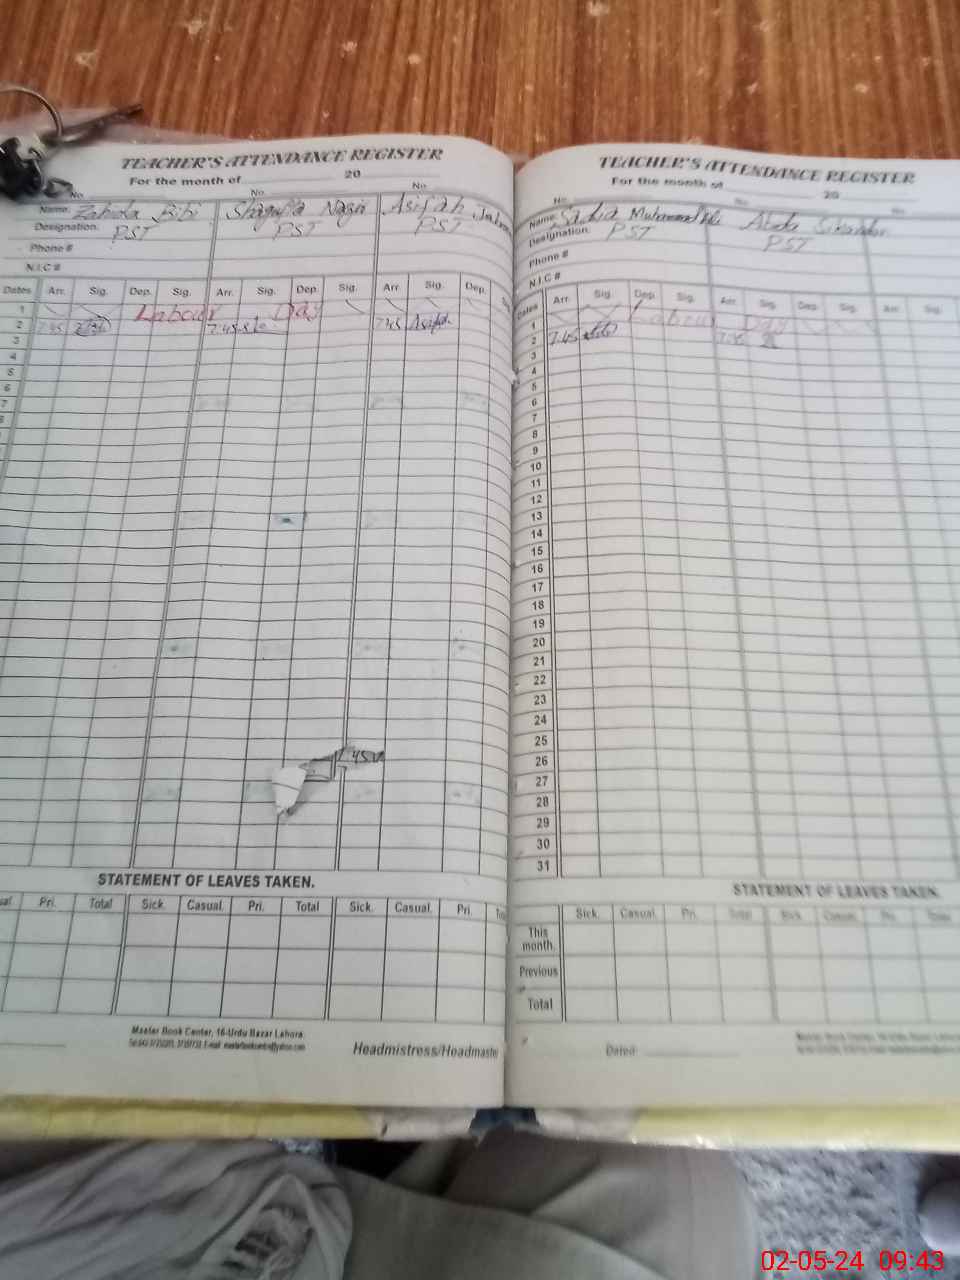 TEACHER'S ATTENDANCE REGISTER
For the month of 20
No. No. No.
Name: Zahida Bibi Shagufta Nazir Asifah
Designation. PST PST PST
Phone #
N.I.C #
Dates Arr. Sig. Dep. Sig. Arr. Sig. Dep. Sig. Arr. Sig. Dep.
1 Labour Day
2 7:45 7:45 7:45 Asifah
3
4
5
6
7
8
STATEMENT OF LEAVES TAKEN.
Pri. Total Sick. Casual. Pri. Total Sick. Casual. Pri.
Master Book Center, 16-Urdu Bazar Lahore
Headmistress/Headmaster
TEACHER'S ATTENDANCE REGISTER
For the month of 20
No. No. No.
Name: Sadia Muhammad Abida Sikandar
Designation: PST PST
Phone #
N.I.C #
Dates Arr. Sig. Dep. Sig. Arr. Sig. Dep. Sig. Arr. Sig.
1 Labour Day
2 7:45 7:45
3
4
5
6
7
8
9
10
11
12
13
14
15
16
17
18
19
20
21
22
23
24
25
26
27
28
29
30
31
STATEMENT OF LEAVES TAKEN.
Sick. Casual. Pri. Total Sick. Casual. Pri. Total
This month.
Previous
Total
Dated
02-05-24 09:43